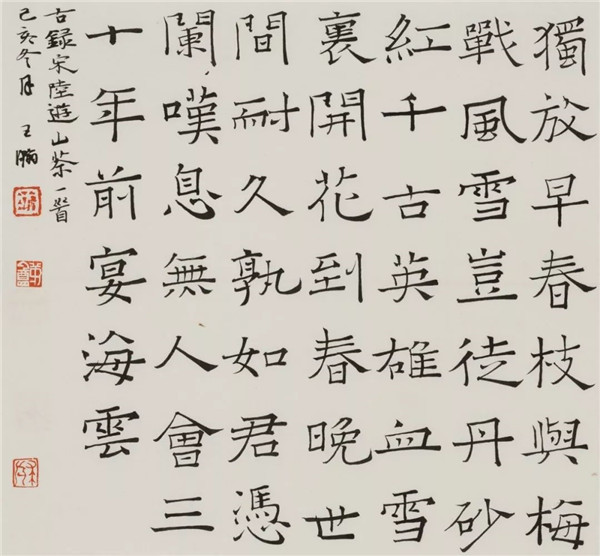 獨放早春枝與梅
戰風雪豈徒丹砂
紅千古英雄血雪
裏開花到春晚世
間耐久孰如君憑
闌嘆息無人會三
十年前宴海雲
古錄宋陸遊山茶一首
己亥冬月 王瀚